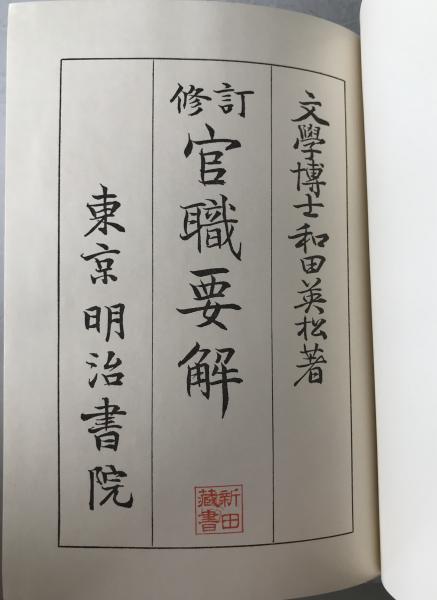 文學博士和田英松著
修訂
官職要解
新田
藏書
東京明治書院